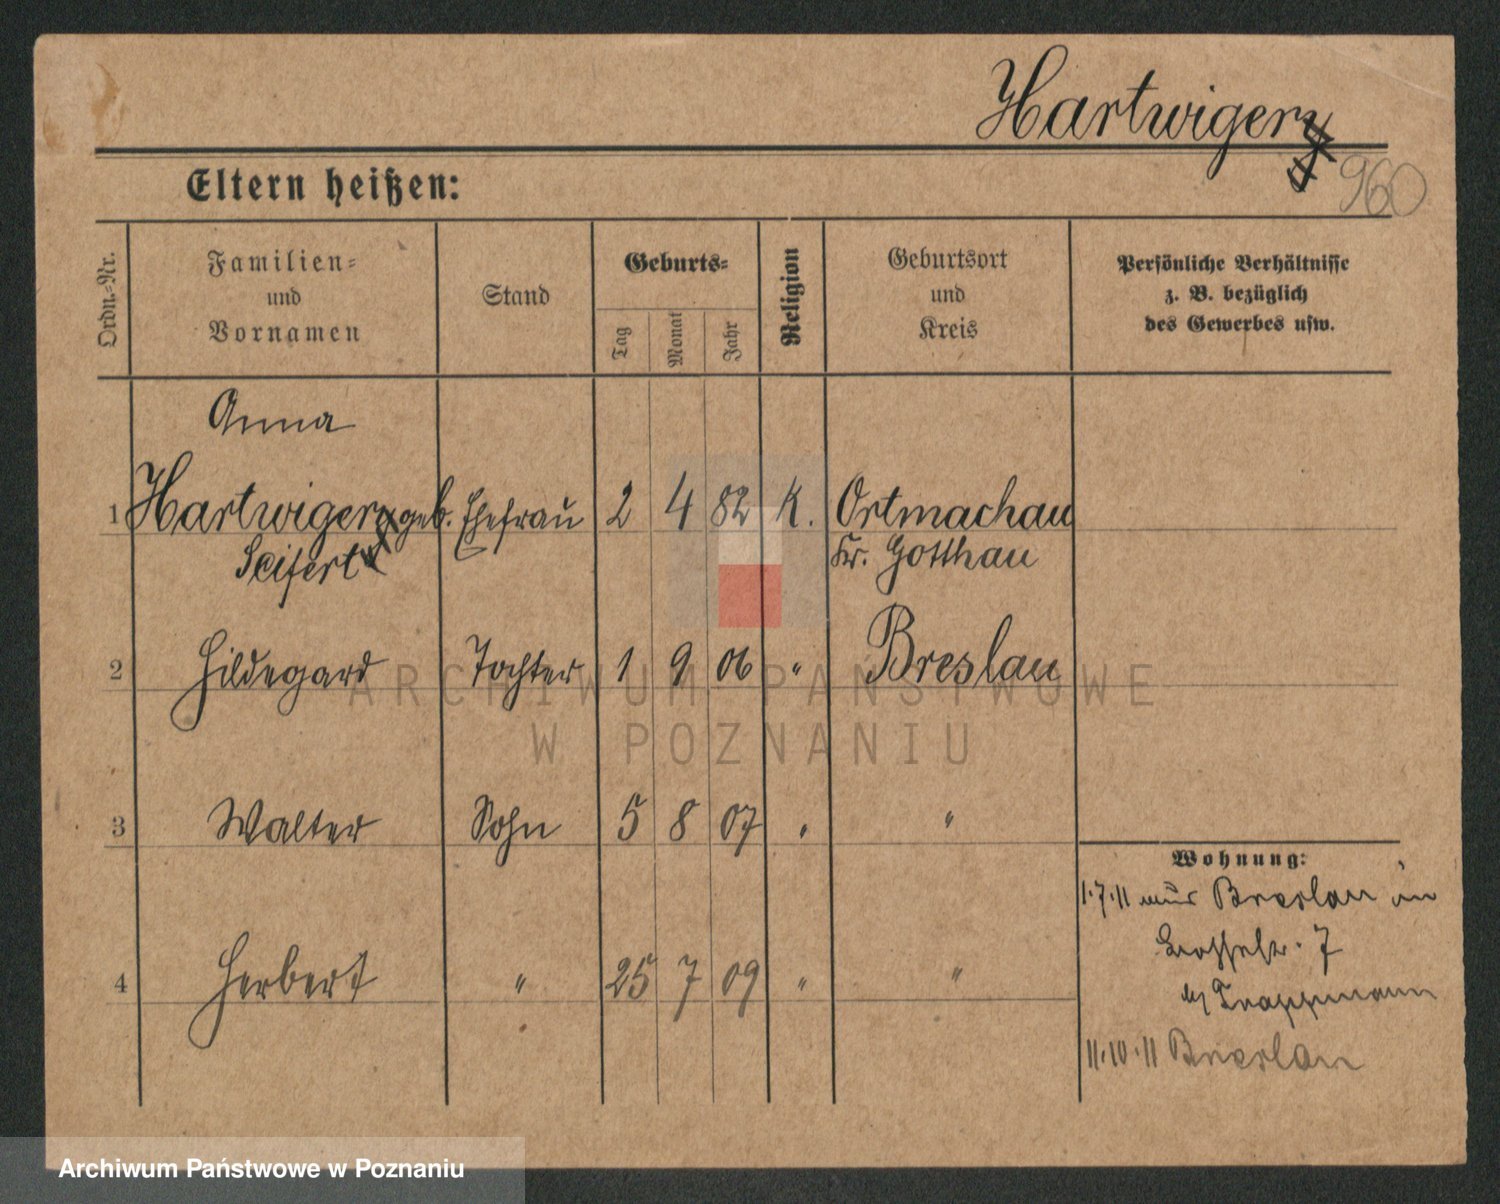 Hartwiger
960
Eltern heißen:
Ordn.-Nr.
Familien=
und
Vornamen
Stand
Geburts=
Tag
Monat
Jahr
Religion
Geburtsort
und
Kreis
Persönliche Verhältnisse
z. B. bezüglich
des Gewerbes usw.
Anna
1 Hartwiger geb. Ehefrau 2 4 82 K. Ortmachau
Seifert Kr. Gotthau
2 Hildegard Tochter 1 9 06 " Breslau
3 Walter Sohn 5 8 07 " "
Wohnung:
1.7.11 aus Breslau in
7
4 Herbert " 25 7 09 " "
bei Trappmann
11.10.11 Breslau
ARCHIWUM PAŃSTWOWE
W POZNANIU
Archiwum Państwowe w Poznaniu